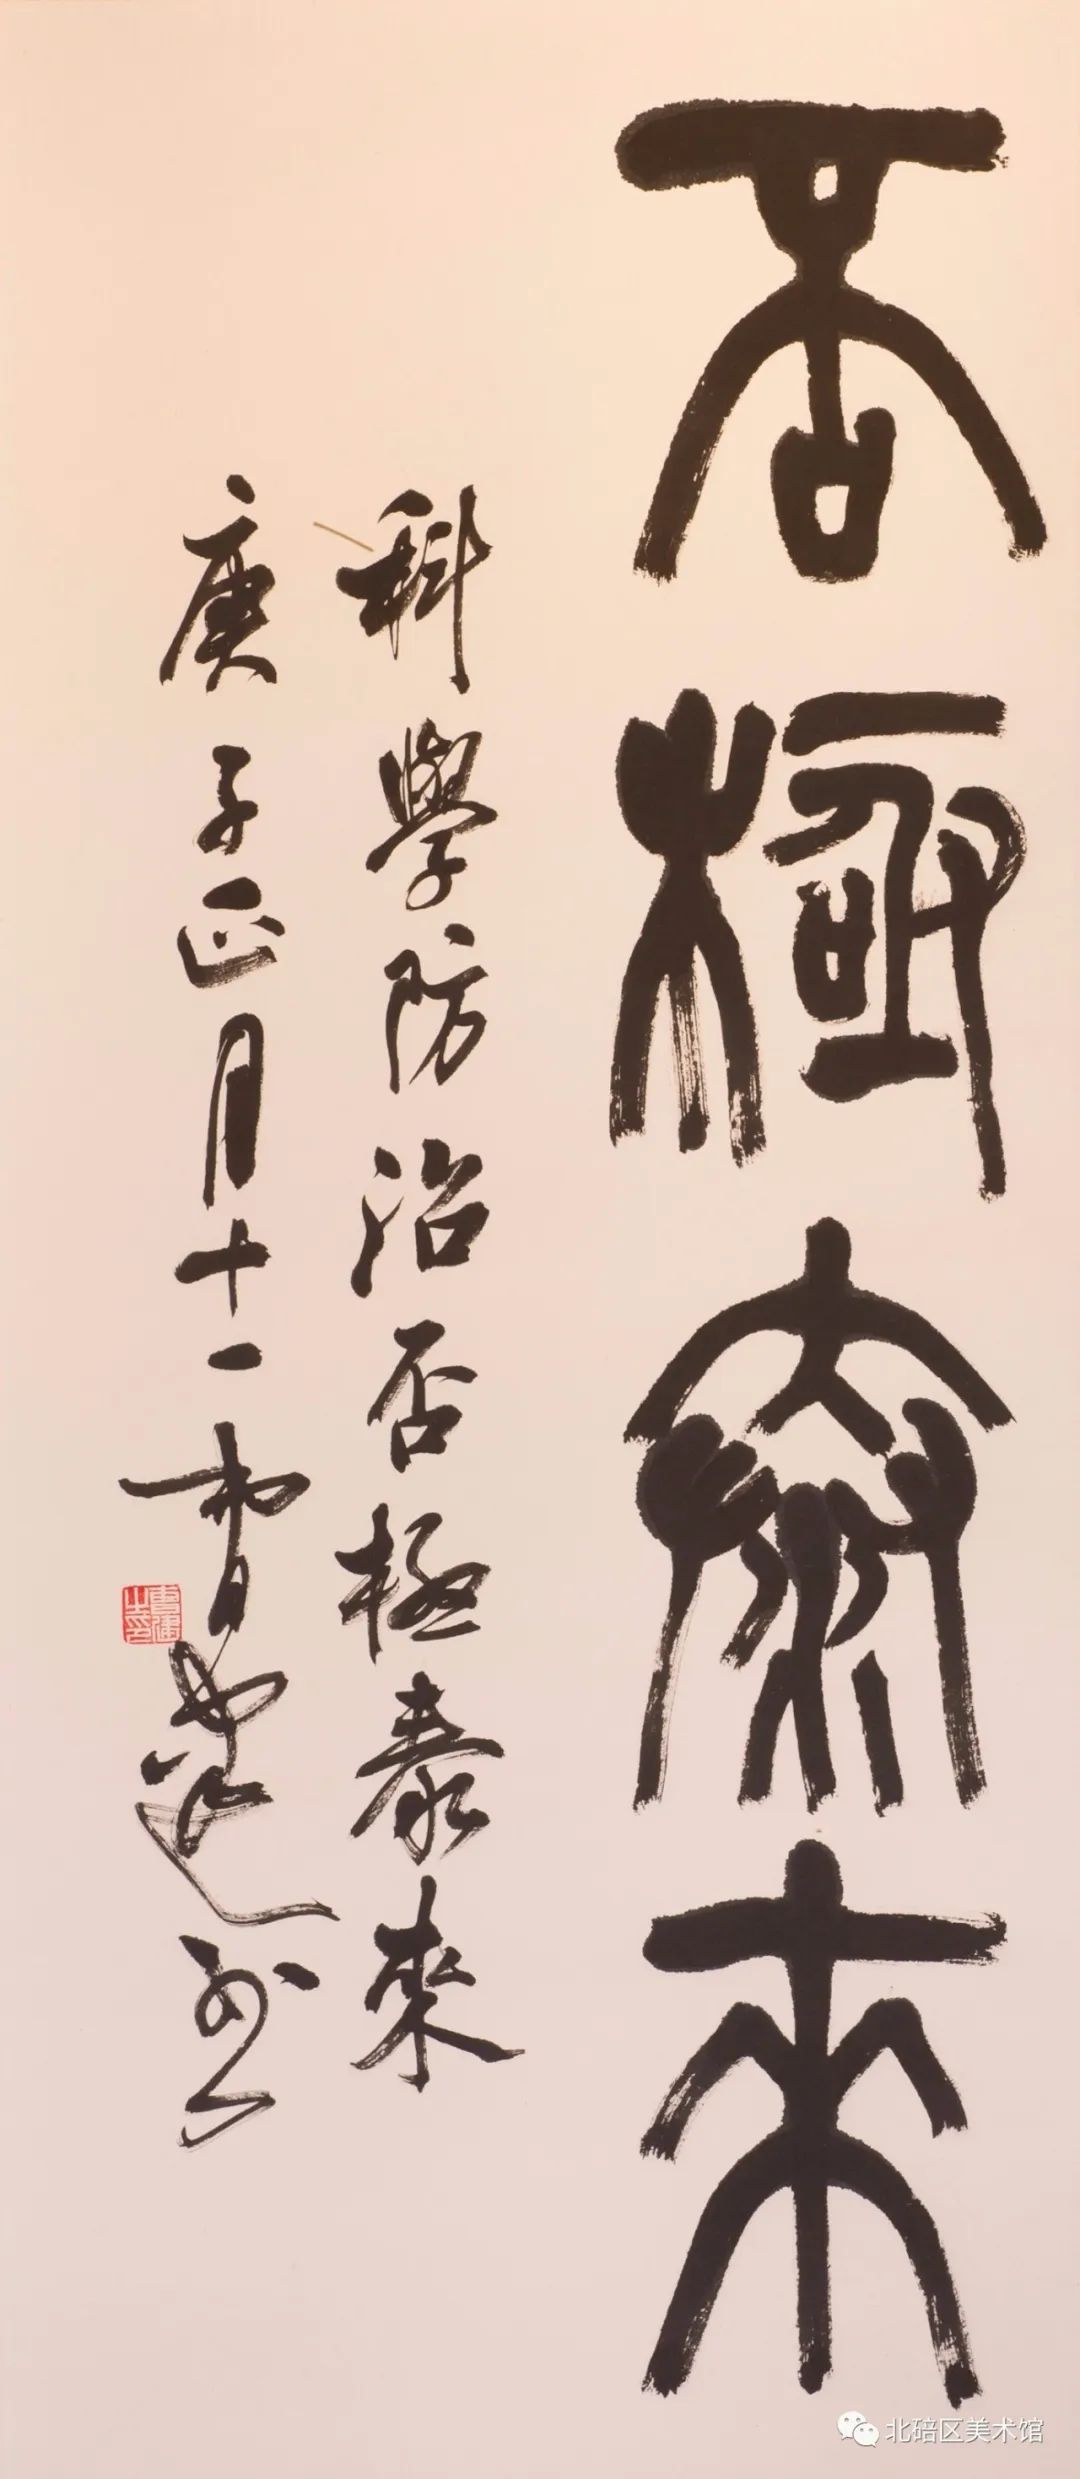 否極泰來
科學防治否極泰來
庚子正月十一曹建
曹建之印
北碚区美术馆